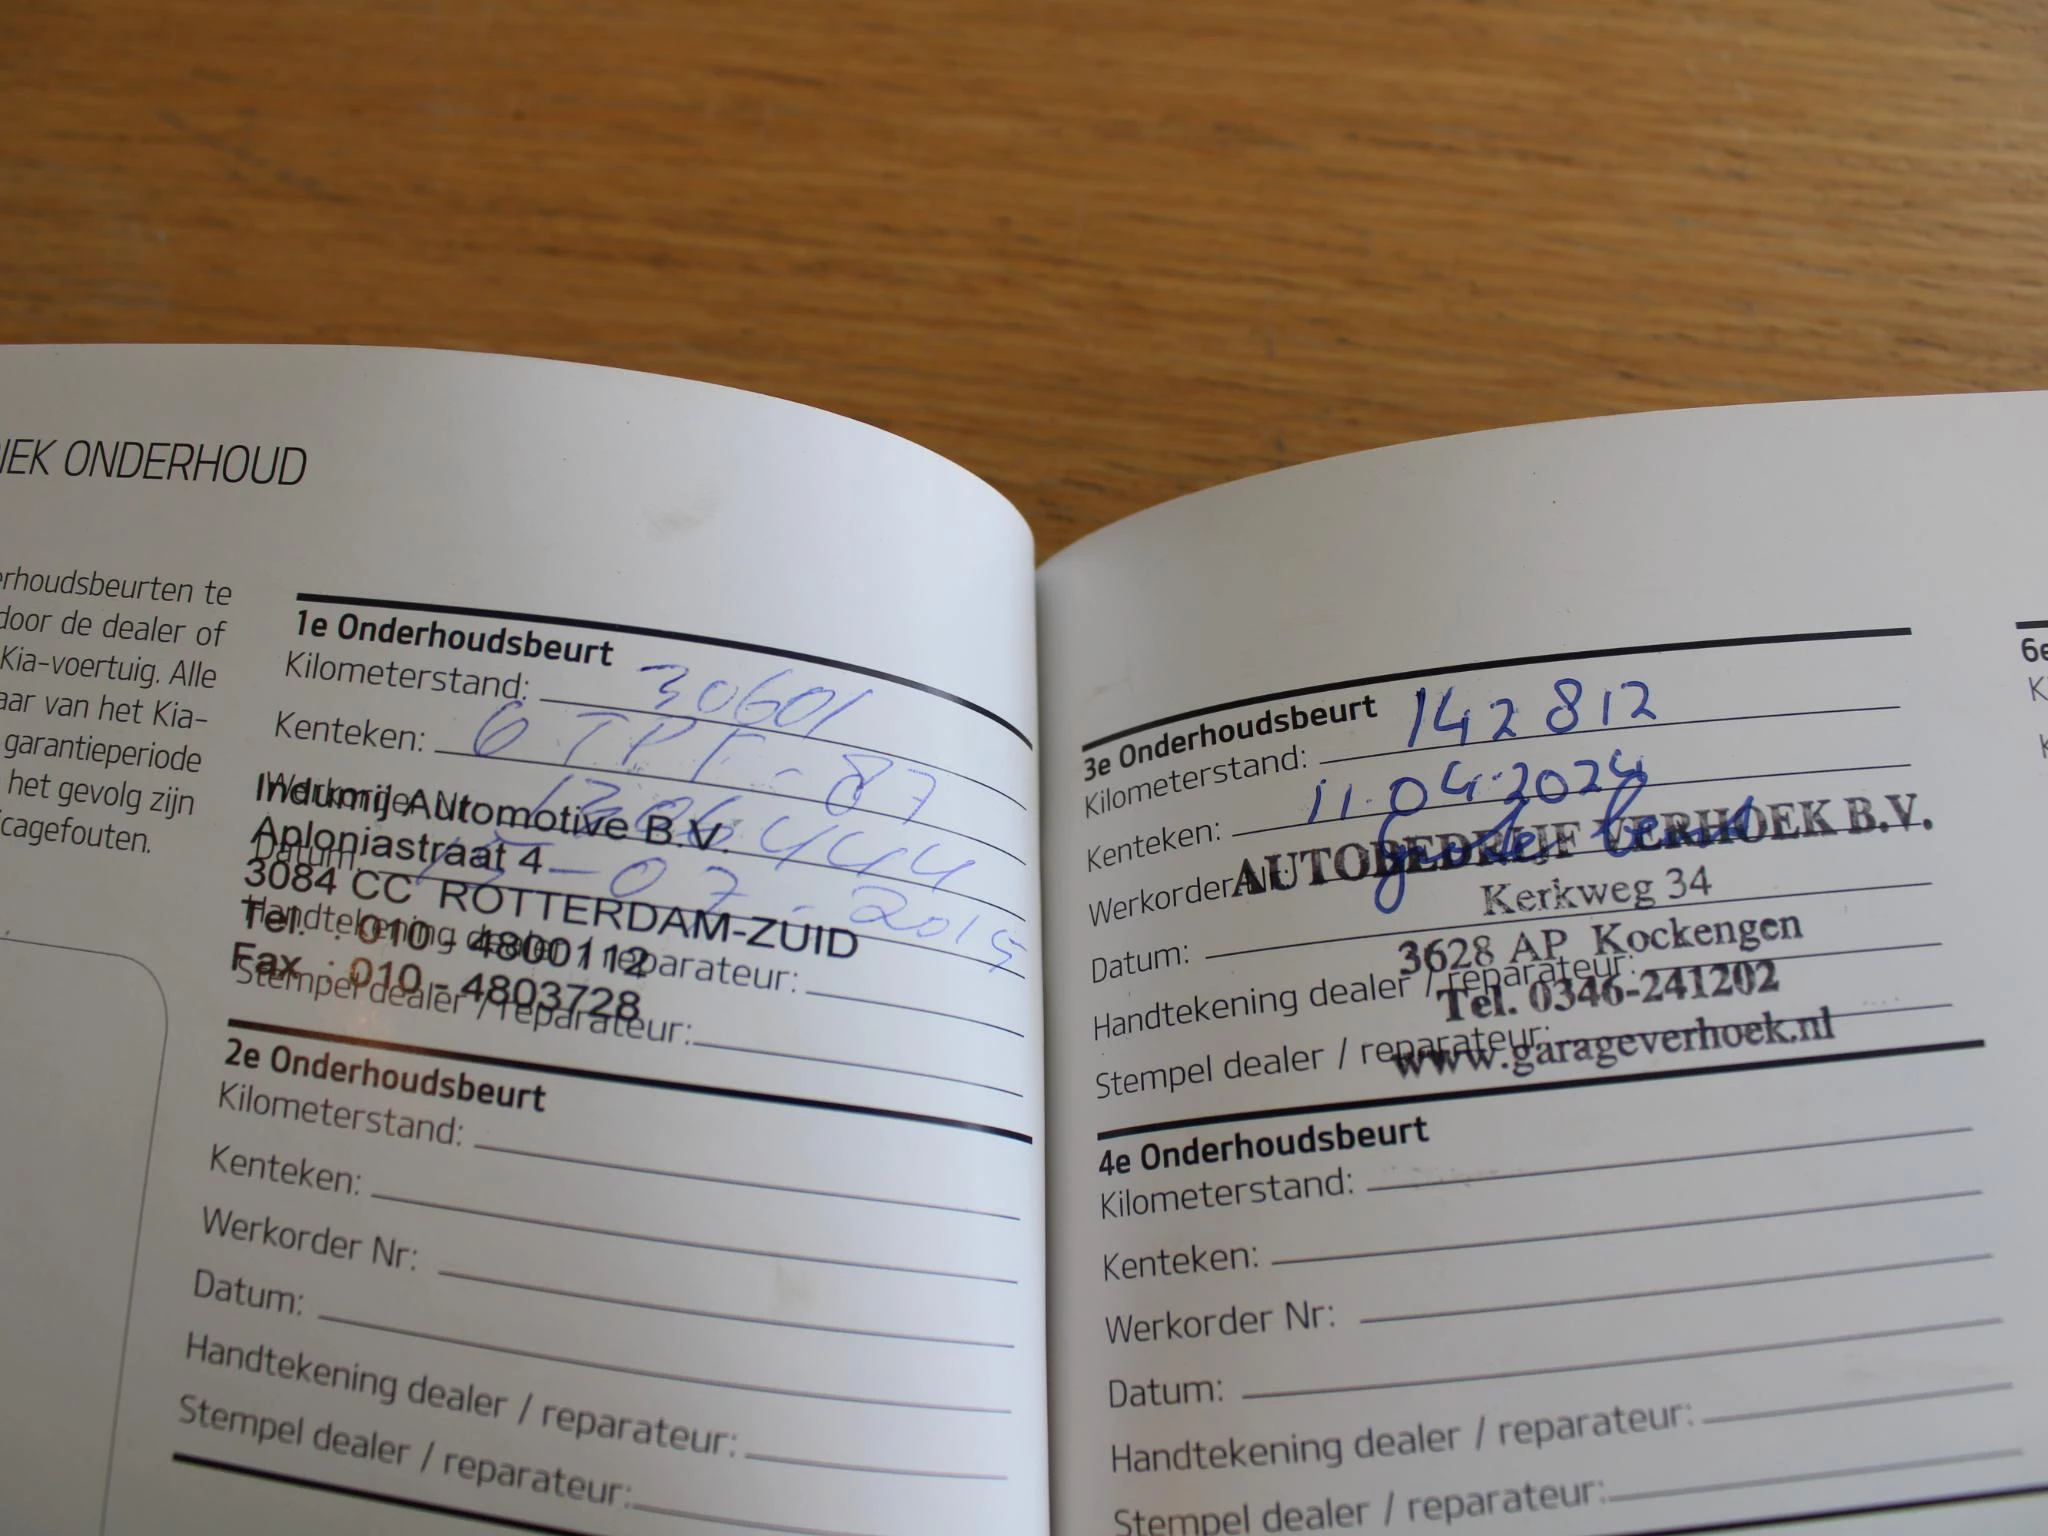 IEK ONDERHOUD
erhoudsbeurten te
door de dealer of
Kia-voertuig. Alle
aar van het Kia-
garantieperiode
het gevolg zijn
cagefouten.
1e Onderhoudsbeurt
Kilometerstand: 30601
Kenteken: 6 TPF-87
Werkorder Nr: 1206444
Datum: 15-07-2015
Handtekening dealer / reparateur:
Stempel dealer / reparateur:
Indumij Automotive B.V.
Aploniastraat 4
3084 CC ROTTERDAM-ZUID
Tel. : 010 - 4800112
Fax : 010 - 4803728
2e Onderhoudsbeurt
Kilometerstand:
Kenteken:
Werkorder Nr:
Datum:
Handtekening dealer / reparateur:
Stempel dealer / reparateur:
3e Onderhoudsbeurt
Kilometerstand: 142812
Kenteken: 11.04.2024
Werkorder Nr: grote beurt
Datum:
Handtekening dealer / reparateur:
Stempel dealer / reparateur:
AUTOBEDRIJF VERHOEK B.V.
Kerkweg 34
3628 AP Kockengen
Tel. 0346-241202
www.garageverhoek.nl
4e Onderhoudsbeurt
Kilometerstand:
Kenteken:
Werkorder Nr:
Datum:
Handtekening dealer / reparateur:
Stempel dealer / reparateur:
6e
K
K